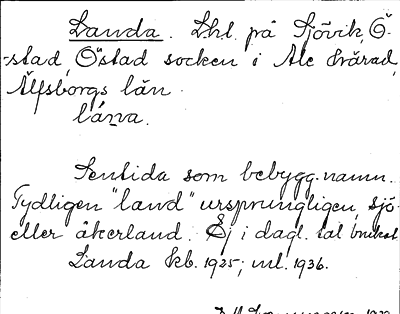 Landa. Lht. på Sjövik, Ö-
stad, Östad socken i Ale härad,
Älfsborgs län.
lánа.
Sentida som bebygg.namn.
Tydligen "land" ursprungligen sjö-
eller åkerland. Ej i dagl. tal brukat
Landa kb. 1925; ml. 1936.